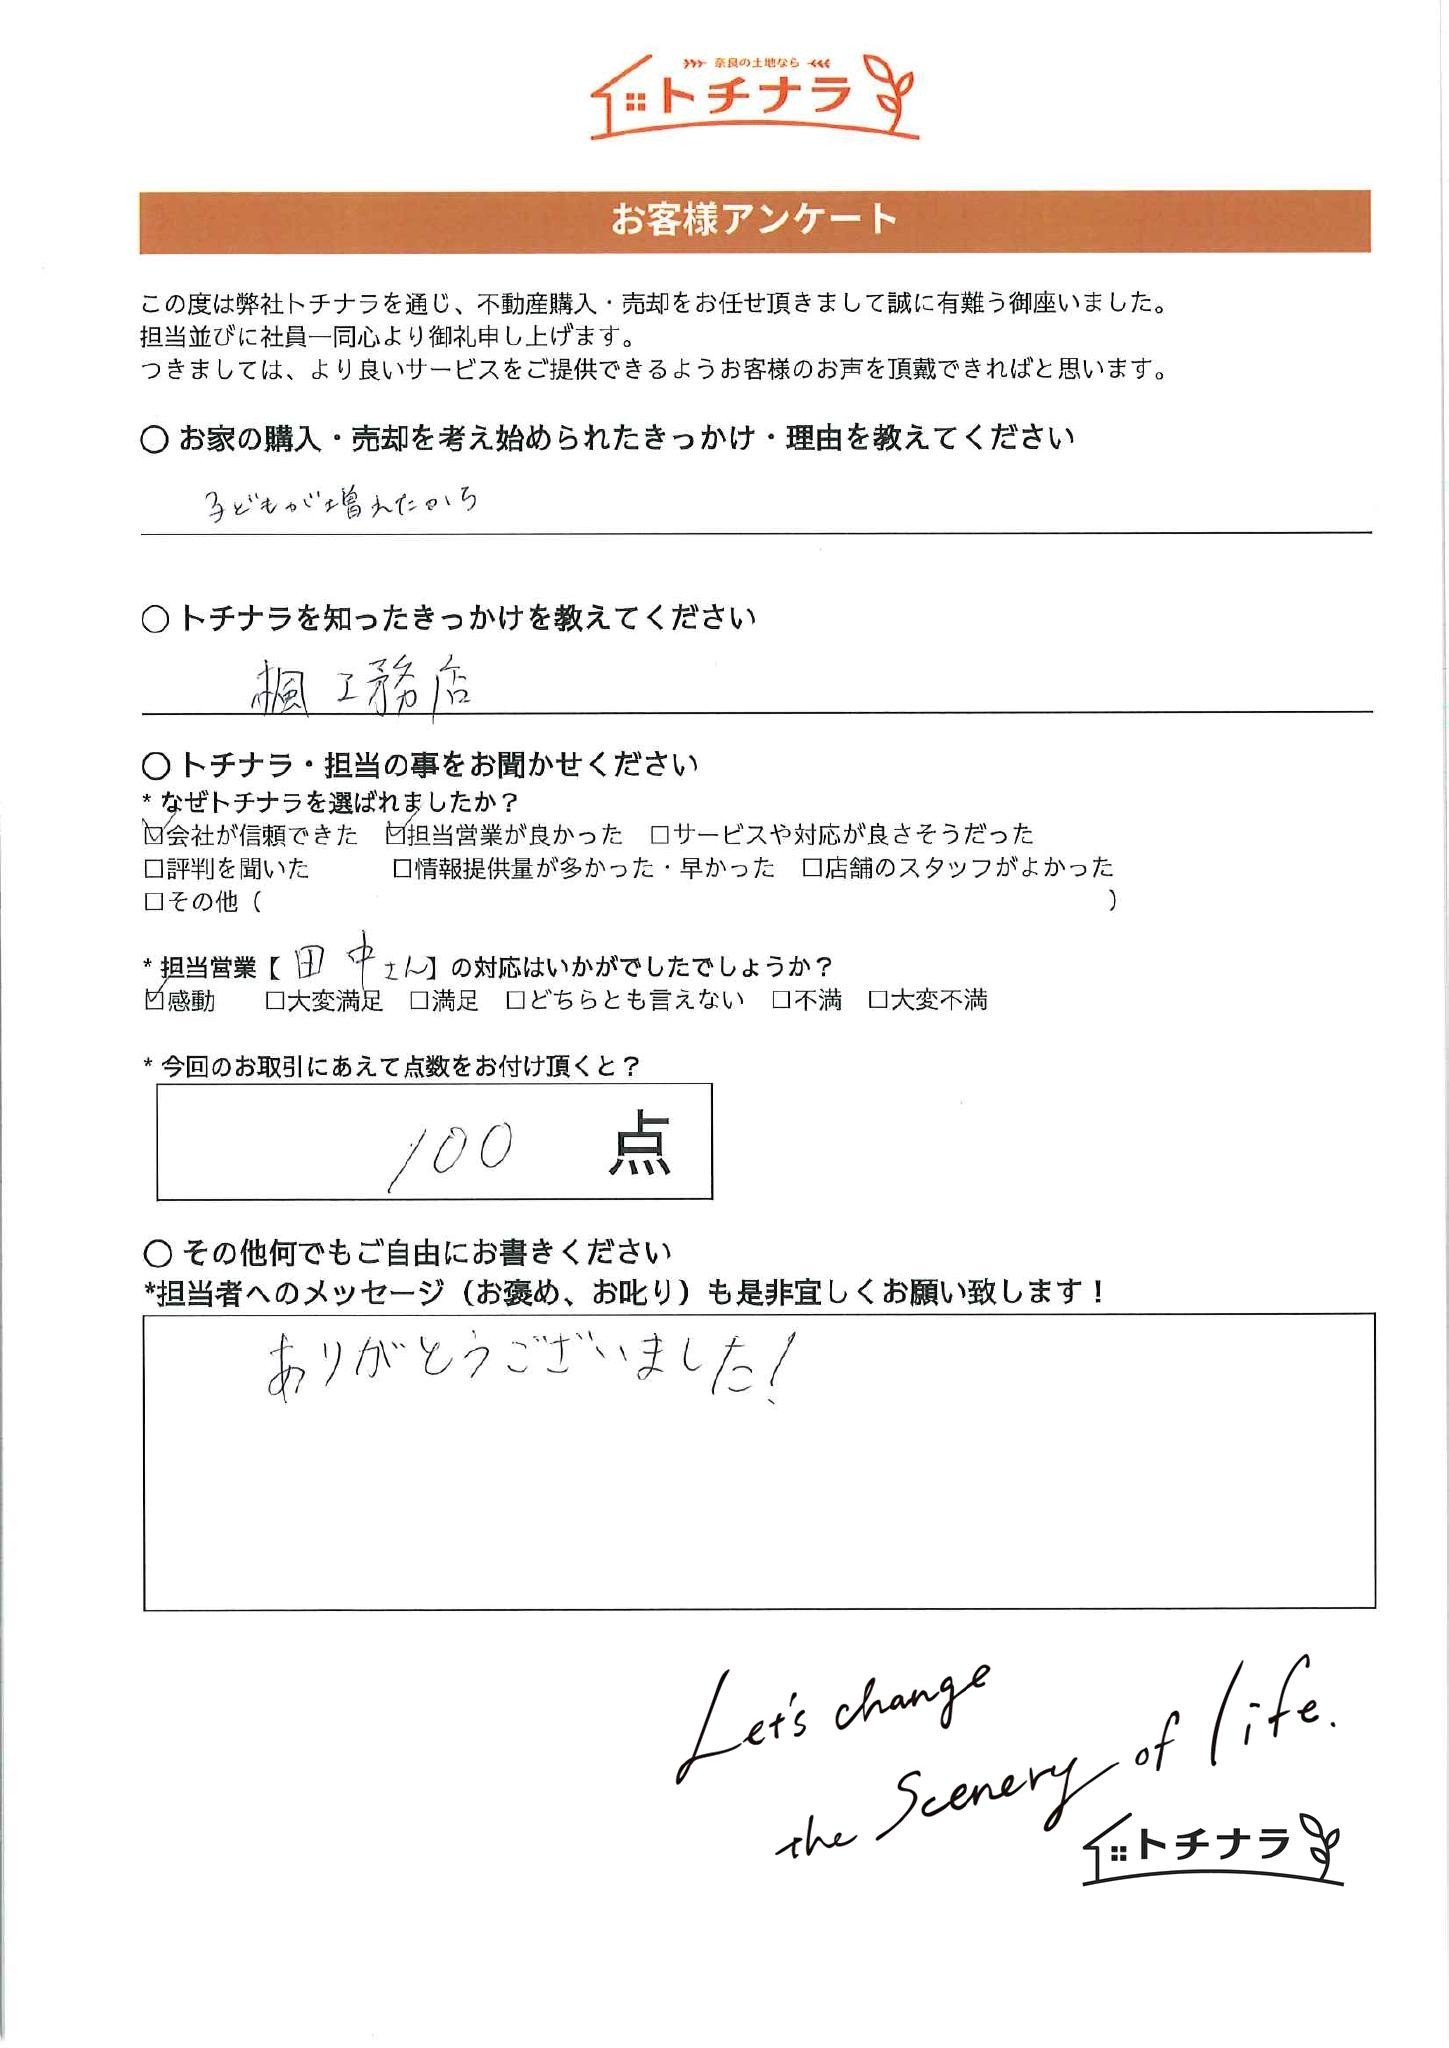 奈良の土地なら
トチナラ
お客様アンケート
この度は弊社トチナラを通じ、不動産購入・売却をお任せ頂きまして誠に有難う御座いました。
担当並びに社員一同心より御礼申し上げます。
つきましては、より良いサービスをご提供できるようお客様のお声を頂戴できればと思います。
○ お家の購入・売却を考え始められたきっかけ・理由を教えてください
子どもが増えたから
○ トチナラを知ったきっかけを教えてください
楓工務店
○ トチナラ・担当の事をお聞かせください
* なぜトチナラを選ばれましたか？
☑会社が信頼できた ☑担当営業が良かった □サービスや対応が良さそうだった
□評判を聞いた □情報提供量が多かった・早かった □店舗のスタッフがよかった
□その他（ ）
* 担当営業【 田中さん】の対応はいかがでしたでしょうか？
☑感動 □大変満足 □満足 □どちらとも言えない □不満 □大変不満
* 今回のお取引にあえて点数をお付け頂くと？
100 点
○ その他何でもご自由にお書きください
*担当者へのメッセージ（お褒め、お叱り）も是非宜しくお願い致します！
ありがとうございました！
Let's change
the Scenery of life.
トチナラ